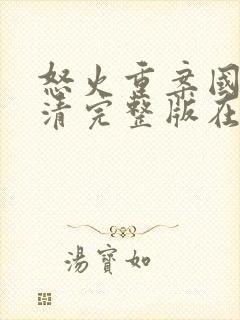 怒火重案國
清完整版在
湯寶如